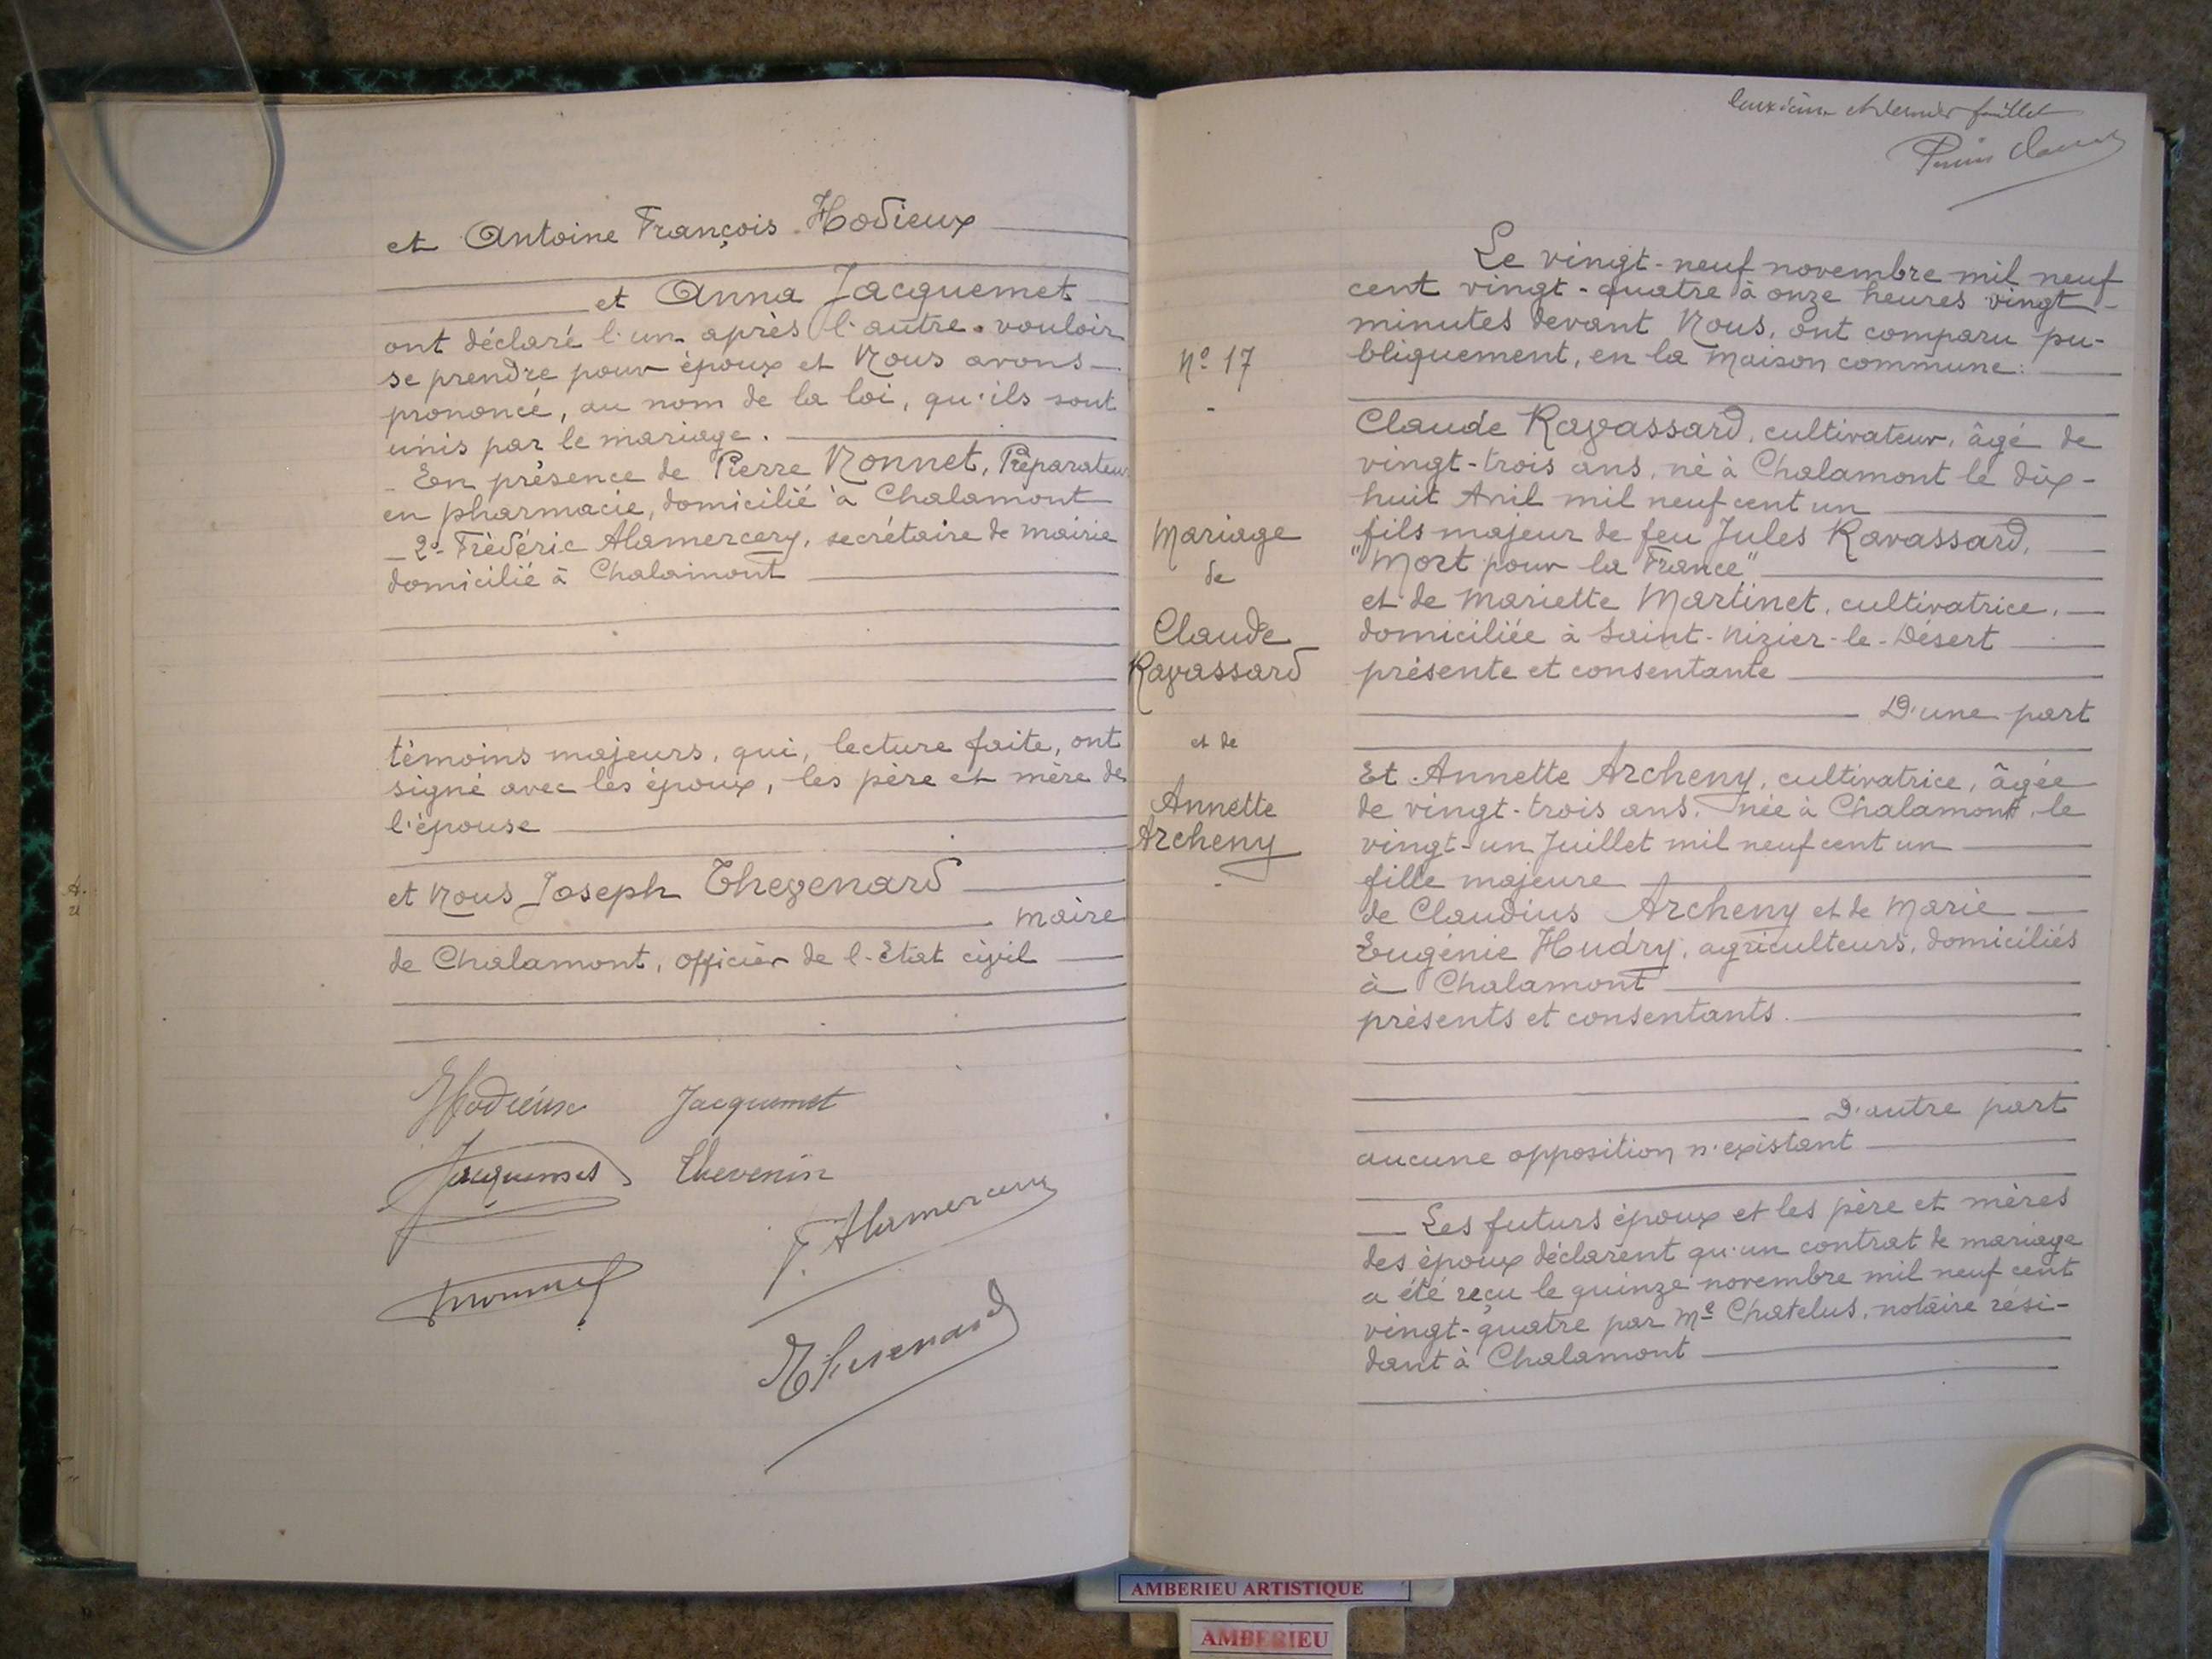 et Antoine François Hodieux
et Anna Jacquemet
ont déclaré l'un après l'autre vouloir
se prendre pour époux et Nous avons
prononcé, au nom de la loi, qu'ils sont
unis par le mariage.
En présence de Pierre Nonnet, Préparateur
en pharmacie, domicilié à Chalamont
2º Frédéric Alamercery, secrétaire de mairie
domicilié à Chalamont
témoins majeurs, qui, lecture faite, ont
signé avec les époux, les père et mère de
l'épouse
et Nous Joseph Thevenard
maire
de Chalamont, officier de l'Etat civil
Hodieux Jacquemet
Jacquemet Thevenin
F. Alamercery
Nonnet
Thevenard
deuxième et dernier feuillet
Le vingt-neuf novembre mil neuf
cent vingt-quatre à onze heures vingt
minutes devant Nous, ont comparu pu-
bliquement, en la maison commune:
Nº 17
Mariage
de
Claude
Ravassard
et de
Annette
Archeny
Claude Ravassard, cultivateur, âgé de
vingt-trois ans, né à Chalamont le dix-
huit Avril mil neuf cent un
fils majeur de feu Jules Ravassard,
"Mort pour la France"
et de Mariette Martinet, cultivatrice,
domiciliée à Saint-Nizier-le-Désert
présente et consentante
D'une part
Et Annette Archeny, cultivatrice, âgée
de vingt-trois ans, née à Chalamont, le
vingt-un Juillet mil neuf cent un
fille majeure
de Claudius Archeny et de Marie
Eugénie Hudry, agriculteurs, domiciliés
à Chalamont
présents et consentants.
D'autre part
aucune opposition n'existant
Les futurs époux et les père et mères
des époux déclarent qu'un contrat de mariage
a été reçu le quinze novembre mil neuf cent
vingt-quatre par Me Chatelus, notaire rési-
dant à Chalamont
AMBERIEU ARTISTIQUE
AMBERIEU